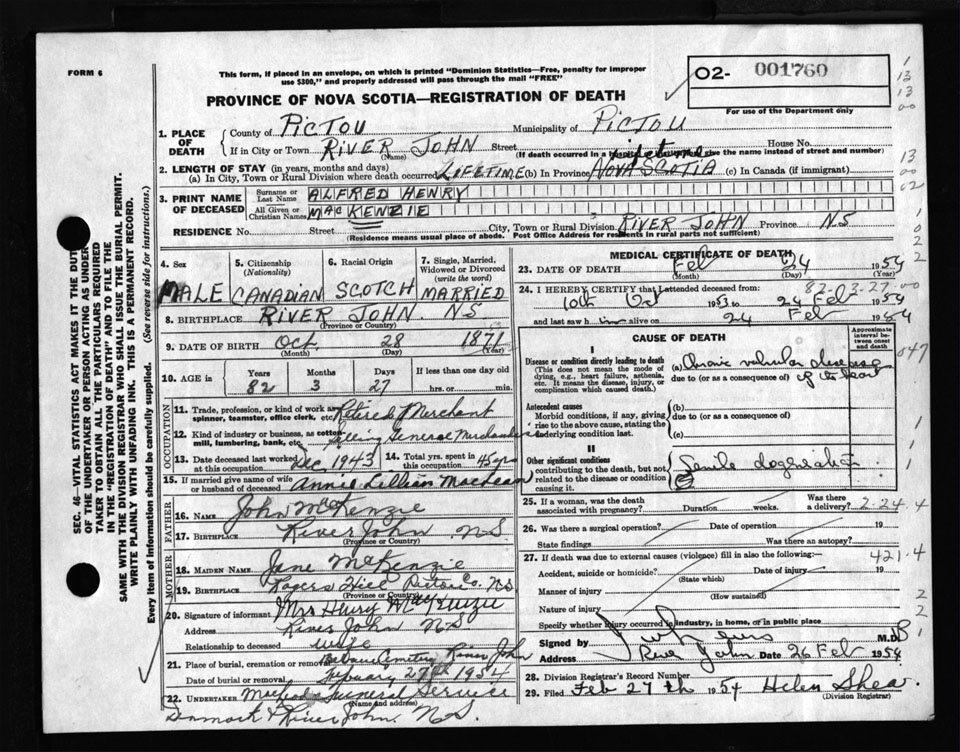 FORM 6
This form, if placed in an envelope, on which is printed "Dominion Statistics—Free, penalty for improper
use $300," and properly addressed will pass through the mail "FREE"
O2- 001760
For use of the Department only
PROVINCE OF NOVA SCOTIA—REGISTRATION OF DEATH
1. PLACE OF DEATH
County of PICTOU Municipality of PICTOU
If in City or Town RIVER JOHN (Name) Street House No.
(If death occurred in a give the name instead of street and number)
2. LENGTH OF STAY (in years, months and days)
(a) In City, Town or Rural Division where death occurred LIFETIME (b) In Province NOVA SCOTIA (c) In Canada (if immigrant)
3. PRINT NAME OF DECEASED
Surname or Last Name ALFRED HENRY
All Given or Christian Names MACKENZIE
RESIDENCE No. Street City, Town or Rural Division RIVER JOHN Province N.S
(Residence means usual place of abode. Post Office Address for residents in rural parts not sufficient)
4. Sex MALE
5. Citizenship (Nationality) CANADIAN
6. Racial Origin SCOTCH
7. Single, Married, Widowed or Divorced (write the word) MARRIED
8. BIRTHPLACE RIVER JOHN. NS
(Province or Country)
9. DATE OF BIRTH Oct 28 1871
(Month) (Day) (Year)
10. AGE in Years 82 Months 3 Days 27 If less than one day old hrs. or min.
OCCUPATION
11. Trade, profession, or kind of work as spinner, teamster, office clerk, etc. Retired Merchant
12. Kind of industry or business, as cotton-mill, lumbering, bank, etc. Selling General Merchandise
13. Date deceased last worked at this occupation Dec. 1943
14. Total yrs. spent in this occupation 45 yrs
15. If married give name of wife or husband of deceased Annie Lillian MacLean
FATHER
16. NAME John McKenzie
17. BIRTHPLACE River John NS.
(Province or Country)
MOTHER
18. MAIDEN NAME Jane McKenzie
19. BIRTHPLACE Rogers Hill Pictou Co. NS
(Province or Country)
20. Signature of informant Mrs Henry MacKenzie
Address River John NS
Relationship to deceased wife
21. Place of burial, cremation or removal Cemetery River John
Date of burial or removal February 27th 1954
22. UNDERTAKER MacLeod Funeral Service
(Name and address)
Denmark & River John. N.S.
MEDICAL CERTIFICATE OF DEATH
23. DATE OF DEATH Feb 24 1954
(Month) (Day) (Year)
82-3-27-00
24. I HEREBY CERTIFY that I attended deceased from:
10th Oct 1953 to 24 Feb 1954
and last saw him alive on 24 Feb 1954
CAUSE OF DEATH
Approximate interval between onset and death
Disease or condition directly leading to death
(This does not mean the mode of dying, e.g., heart failure, asthenia, etc. It means the disease, injury, or complication which caused death.
(a) Chronic valvular disease of the heart
due to (or as a consequence of)
Antecedent causes
Morbid conditions, if any, giving rise to the above cause, stating the underlying condition last.
(b)
due to (or as a consequence of)
(c)
II
Other significant conditions
contributing to the death, but not related to the disease or condition causing it.
Senile
25. If a woman, was the death associated with pregnancy? Duration weeks. Was there a delivery? 2-24-4
26. Was there a surgical operation? Date of operation 19
State findings Was there an autopsy?
27. If death was due to external causes (violence) fill in also the following:— 421.4
Accident, suicide or homicide? Date of injury 19
(State which)
Manner of injury
(How sustained)
Nature of injury
Specify whether injury occurred in industry, in home, or in public place
Signed by M.D.
Address River John Date 26 Feb 1954
28. Division Registrar's Record Number
29. Filed Feb 27th 1954 Helen Shea.
(Division Registrar)
SEC. 46—VITAL STATISTICS ACT MAKES IT THE DUTY
OF THE UNDERTAKER OR PERSON ACTING AS UNDERTAKER
TO OBTAIN ALL THE PARTICULARS REQUIRED
IN THE "REGISTRATION OF DEATH" AND TO FILE THE
SAME WITH THE DIVISION REGISTRAR WHO SHALL ISSUE THE BURIAL PERMIT.
WRITE PLAINLY WITH UNFADING INK. THIS IS A PERMANENT RECORD.
Every item of Information should be carefully supplied. (See reverse side for instructions.)